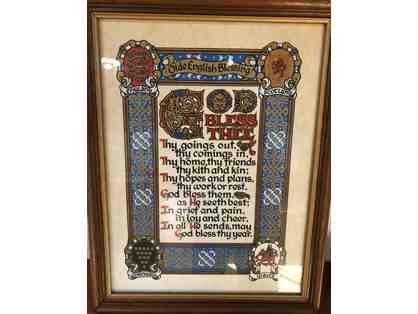 Olde English Blessing
GOD
BLESS
THEE
Thy goings out,
thy comings in,
Thy home, thy friends
thy kith and kin;
Thy hopes and plans,
thy work or rest.
God bless them,
as He seeth best;
In grief and pain,
in joy and cheer,
In all He sends, may
God bless thy year.